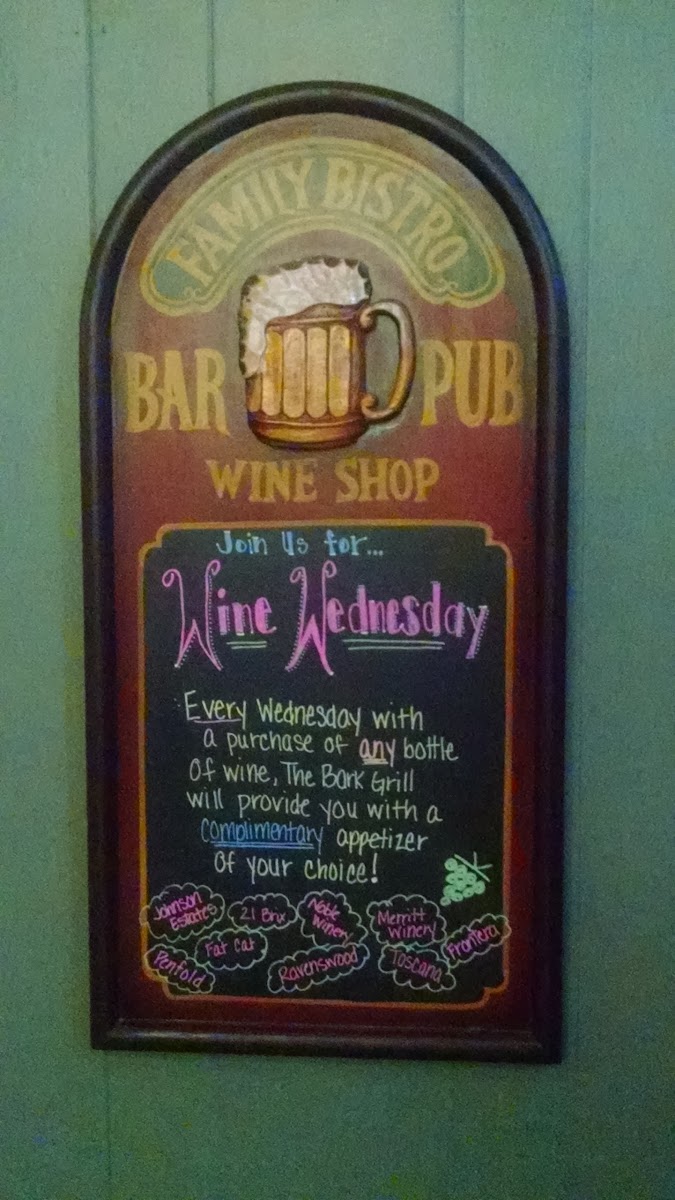 FAMILY BISTRO
BAR PUB
WINE SHOP
Join Us for...
Wine Wednesday
Every Wednesday with
a purchase of any bottle
Of wine, The Bark Grill
will provide you with a
complimentary appetizer
Of your choice!
Johnson Estates
21 Brix
Noble Winery
Merritt Winery
Frontera
Penfold
Fat Cat
Ravenswood
Toscana